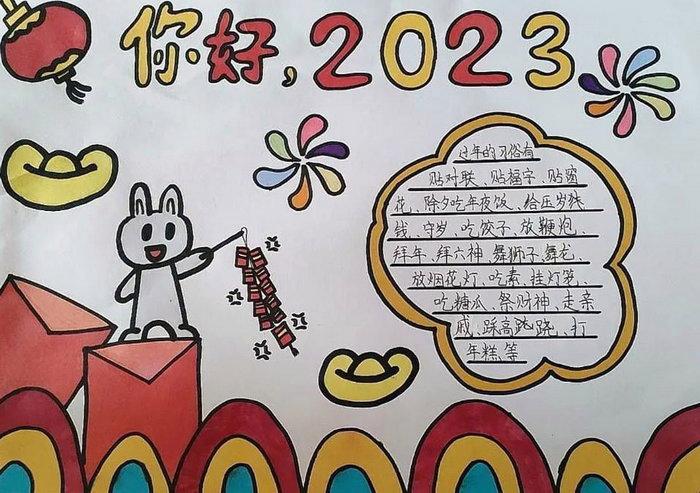 你好,2023
过年的习俗有
贴对联、贴福字、贴窗
花、除夕吃年夜饭、给压岁钱
钱、守岁、吃饺子、放鞭炮、
拜年、拜六神、舞狮子、舞龙、
放烟花灯、吃素、挂灯笼、
吃糖瓜、祭财神、走亲
戚、踩高跳跷、打
年糕等